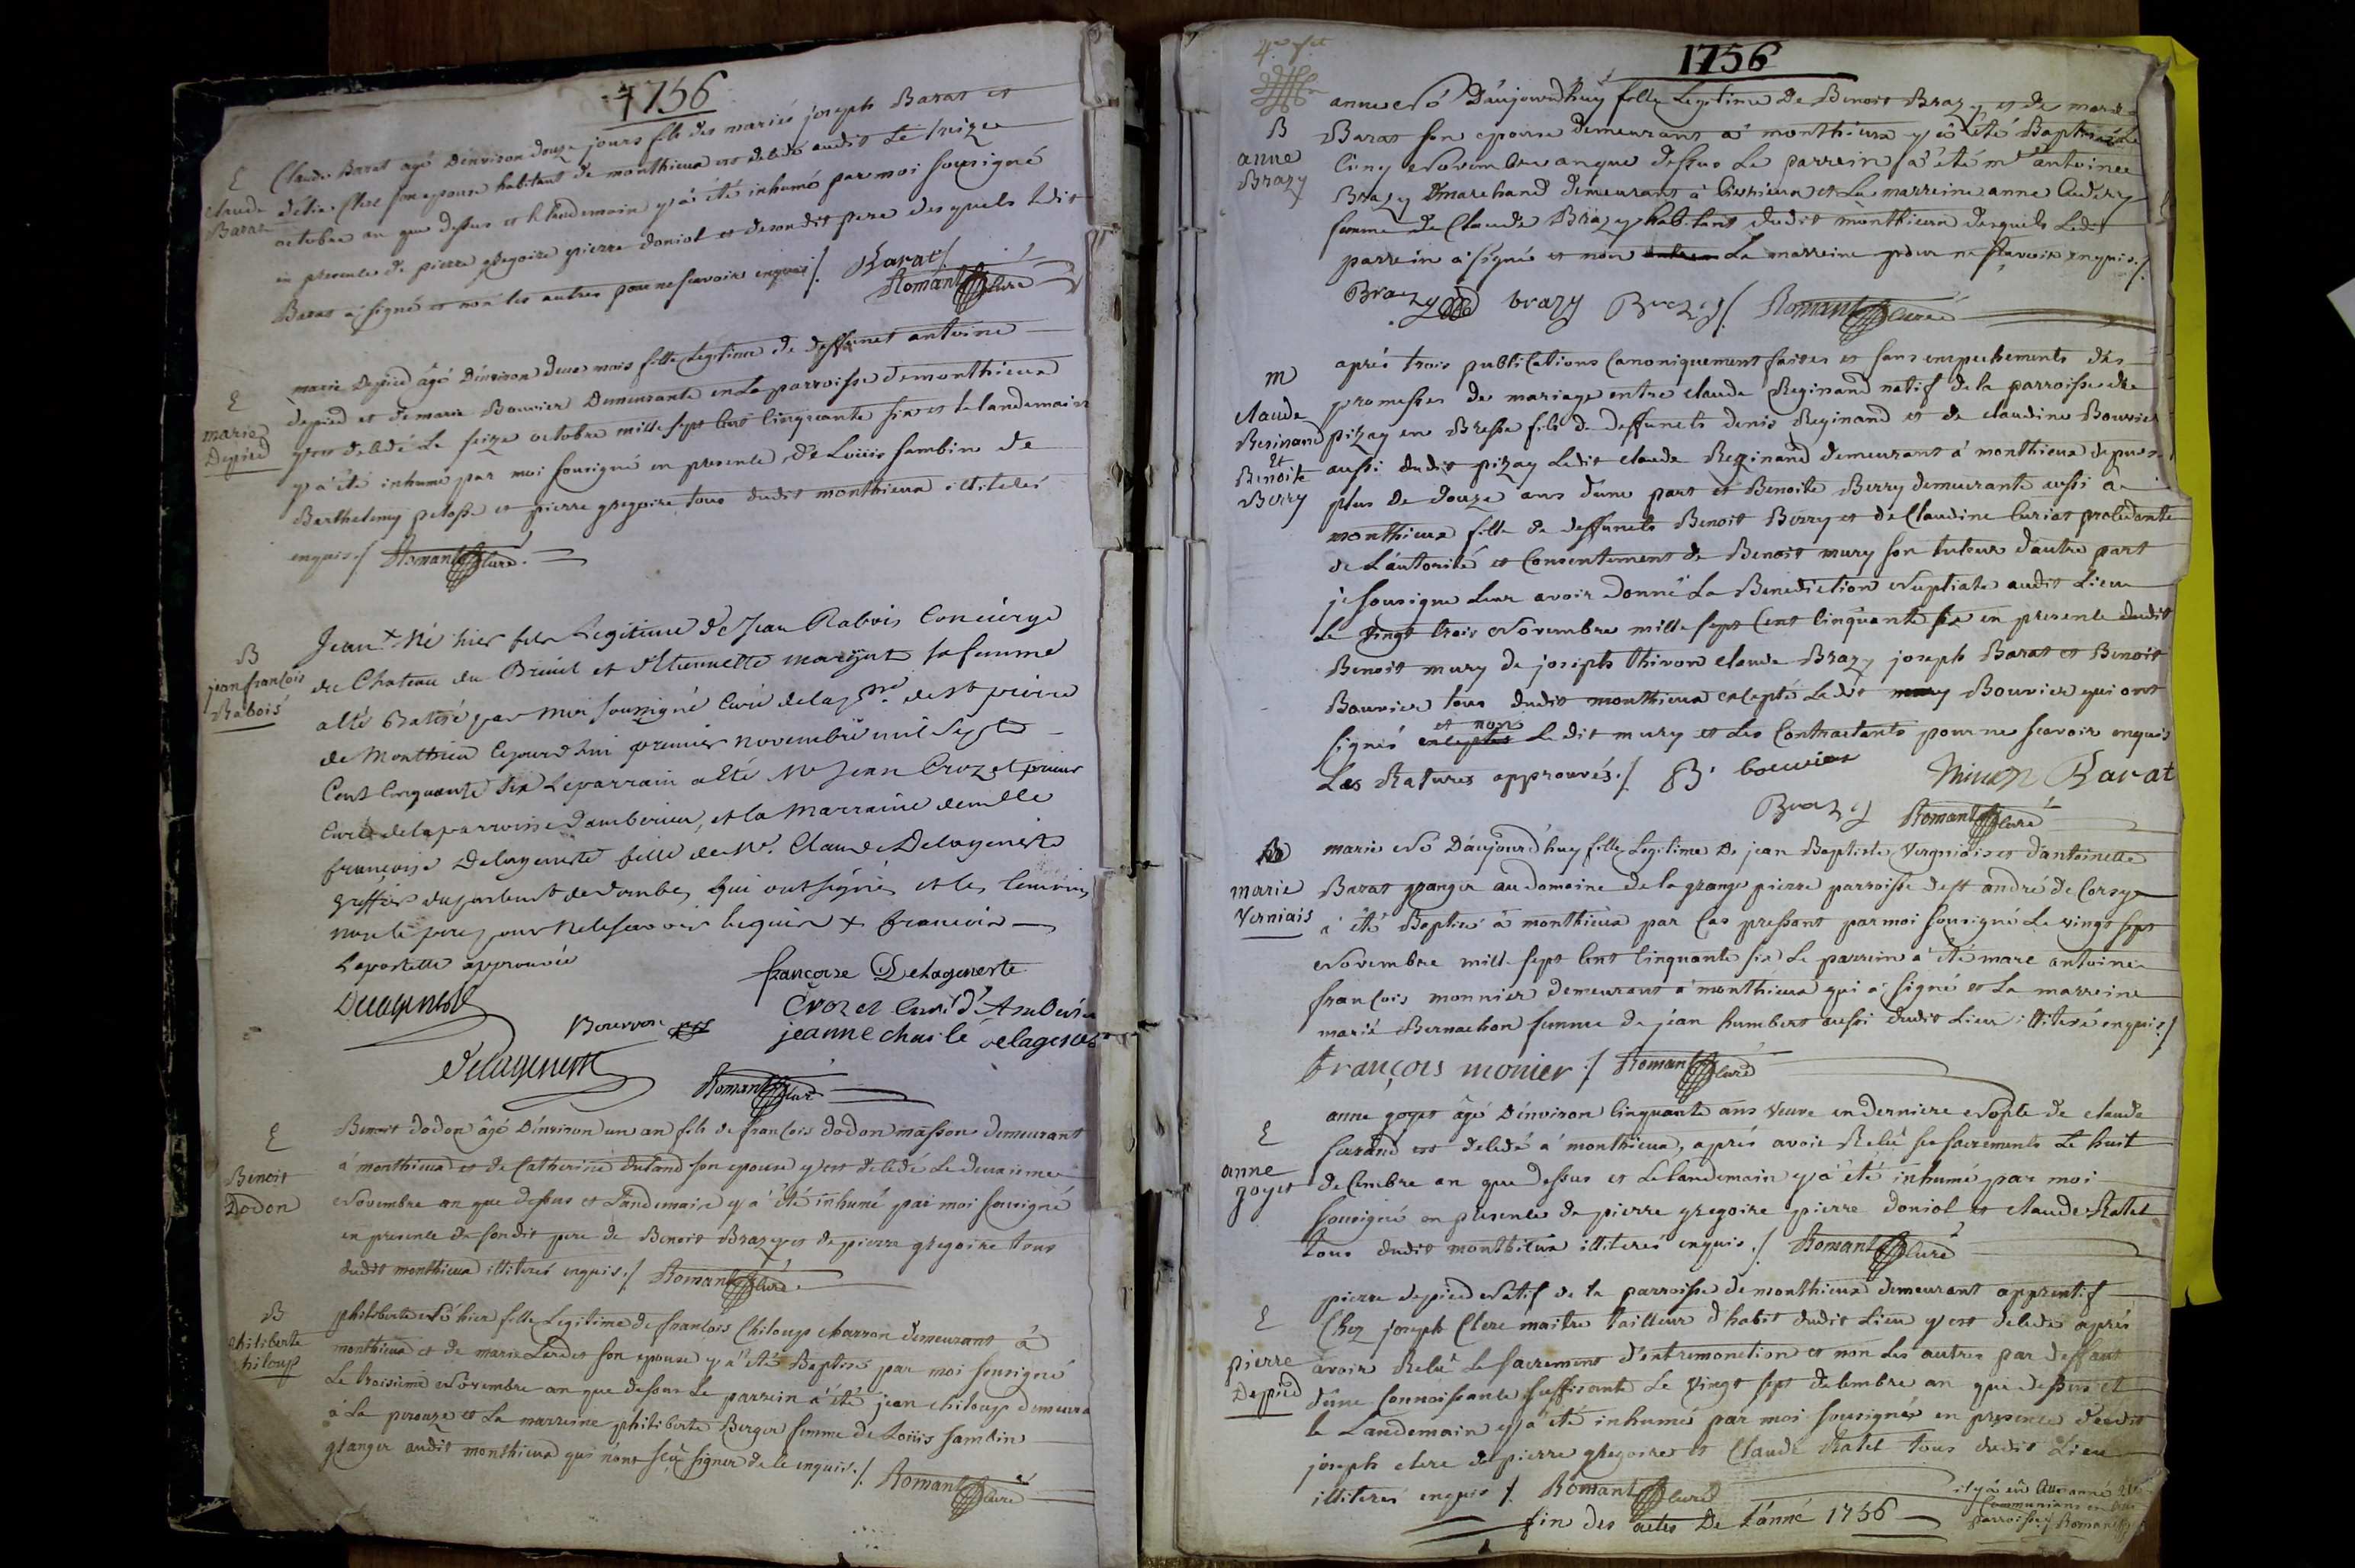 1756
E
claude
Barat
Claude Barat agé Denviron douze jours fils des mariés joseph Barat et
Clere son epouse habitant de monthieux est decedé audit le treize
octobre an que dessus et le landemain y a été inhumé par moi sousigné
en presence de pierre gregoire pierre doniol et de sondit pere desquels ledit
Barat a signé et non les autres pour ne scavoir enquis ./. Barat
Romant Curé
E
marie
Depied
marie Depied âgé Denviron deux mois fille legitime de deffunct antoine
depied et de marie Bouvier Demeurante en La parroisse de monthieux
y est decedé Le seize octobre mille sept cent cinquante six et le landemain
y a été inhumé par moi sousigné en presence de Loüis sambin de
Barthelemy pelosse et pierre gregoire tous dudit monthieux illiterés
enquis ./. Romant Curé
B
jean francois
Rabois
Jean + Né hier fils Legitime de Jean Rabois Concierge
du Chateau du Breuil et d'Etiennette sa femme
a été Batisé par Moi soussigné Curé de la psse de st pierre
de Monthieu cejourdhui premier novembre mil Sept
Cent Cinquante Six Le parrain a été Mr Jean Crozet prieur
Curé de la parroisse d'amberieu, et la Marraine demlle
françoise Delageneste fille de Mr. Claude Delageneste
greffier du parlement de dombes, qui ont signés et les temoins
non le pere pour ne le scavoir requis + francois
L'apostille approuvée
françoise Delageneste
Delageneste
Crozet Curé d'Amberieu
Bourron
jeanne delagenest
Delagenest
Romant Curé
E
Benoit
Dodon
Benoit dodon âgé Denviron un an fils de francois dodon masson demeurant
a monthieux et de Catherine son epouse y est decedé Le deuxieme
Novembre an que dessus et Landemain y a été inhumé par moi sousigné
en presence de sondit pere de Benoit Brazy et de pierre gregoire tous
dudit monthieux illiterés enquis ./. Romant Curé
B
philiberte
Chiloup
philiberte Né hier fille Legitime de francois Chiloup charron demeurant a
monthieux et de marie son epouse y a été Baptisé par moi sousigné
Le troisieme Novembre an que dessus Le parrein a été jean chiloup demeurant
a La perouze et La marreine philiberte Berger femme de Loüis sambin
granger audit monthieux qui n'ont sçû signer de ce enquis ./. Romant Curé
1756
B
anne
Brazy
anne Né D'aujourd'huy fille Legitime De Benoit Brazy et de marie
Barat son epouse demeurant a monthieux y a été Baptisé Le
cinq Novembre an que dessus Le parrein a été mr antoine
Brazy marchand demeurant a et La marreine anne
femme de Claude Brazy habitant dudit monthieux desquels Ledit
parrein a signé et non La marreine pour ne sçavoir enquis ./.
Brazy brazy Brazy ./. Romant Curé
m
claude
Reginand
Et
Benoite
Berry
aprés trois publications Canoniquement faites et sans empechements des
promesses de mariage entre claude Reginand natif de la parroisse de
pizay en Bresse fils de deffuncts denis Reginand et de claudine Bouvier
aussi dudit pizay Ledit claude Reginand demeurant a monthieux depuis
plus de douze ans d'une part et Benoite Berry demeurante aussi a
monthieux fille de deffuncts Benoit Berry et de Claudine Curiat procedante
de L'autorité et Consentement de Benoit mury son tuteur d'autre part
je sousigné Leur avoir donné La Benediction Nuptiale audit Lieu
Le vingt trois Novembre mille sept Cent Cinquante six en presence dudit
Benoit mury de joseph thivon claude Brazy joseph Barat et Benoit
Bouvier tous dudit monthieux excepté Ledit Bouvier qui ont
signés et non Le dit mury et Les Contractants pour ne scavoir enquis
Les Ratures approuvés ./. B. bouvier Barat
Brazy Romant Curé
B
marie
Verniais
marie Né D'aujourd'huy fille Legitime De jean Baptiste Vergniais et d'antoinette
Barat granger au domaine de la grange pierre parroisse de st andré de Corcy
a été Baptisé a monthieux par Cas pressant par moi sousigné Le vingt sept
Novembre mille sept Cent Cinquante six Le parrein a été marc antoine
francois monnier demeurant a monthieux qui a signé et La marreine
marie Bernachon femme de jean humbert aussi dudit Lieu illiteré enquis ./.
françois monier ./. Romant Curé
E
anne
goyet
anne goyet âgé D'environ Cinquante ans Veuve en derniere Nopce de claude
farand est decedé a monthieux, aprés avoir Reçû ses sacrements Le huit
decembre an que dessus et Le landemain y a été inhumé par moi
sousigné en presence de pierre gregoire pierre doniol et claude Ratel
tous dudit monthieux illiterés enquis ./. Romant Curé
E
pierre
Depied
pierre depied Natif de la parroisse de monthieux demeurant apprentif
Chez joseph Clere maitre tailleur d'habit dudit Lieu y est decedé aprés
avoir Reçû Le sacrement d'extremonction et non Les autres par deffaut
d'une Connoissance suffisante Le vingt sept decembre an que dessus et
le Landemain y a été inhumé par moi sousigné en presence dudit
joseph clere de pierre gregoire et Claude Ratel tous dudit Lieu
illiterés enquis ./. Romant Curé
fin des actes De L'anné 1756
il y a eû Cette anné
Communians en
parroisse ./. Romant